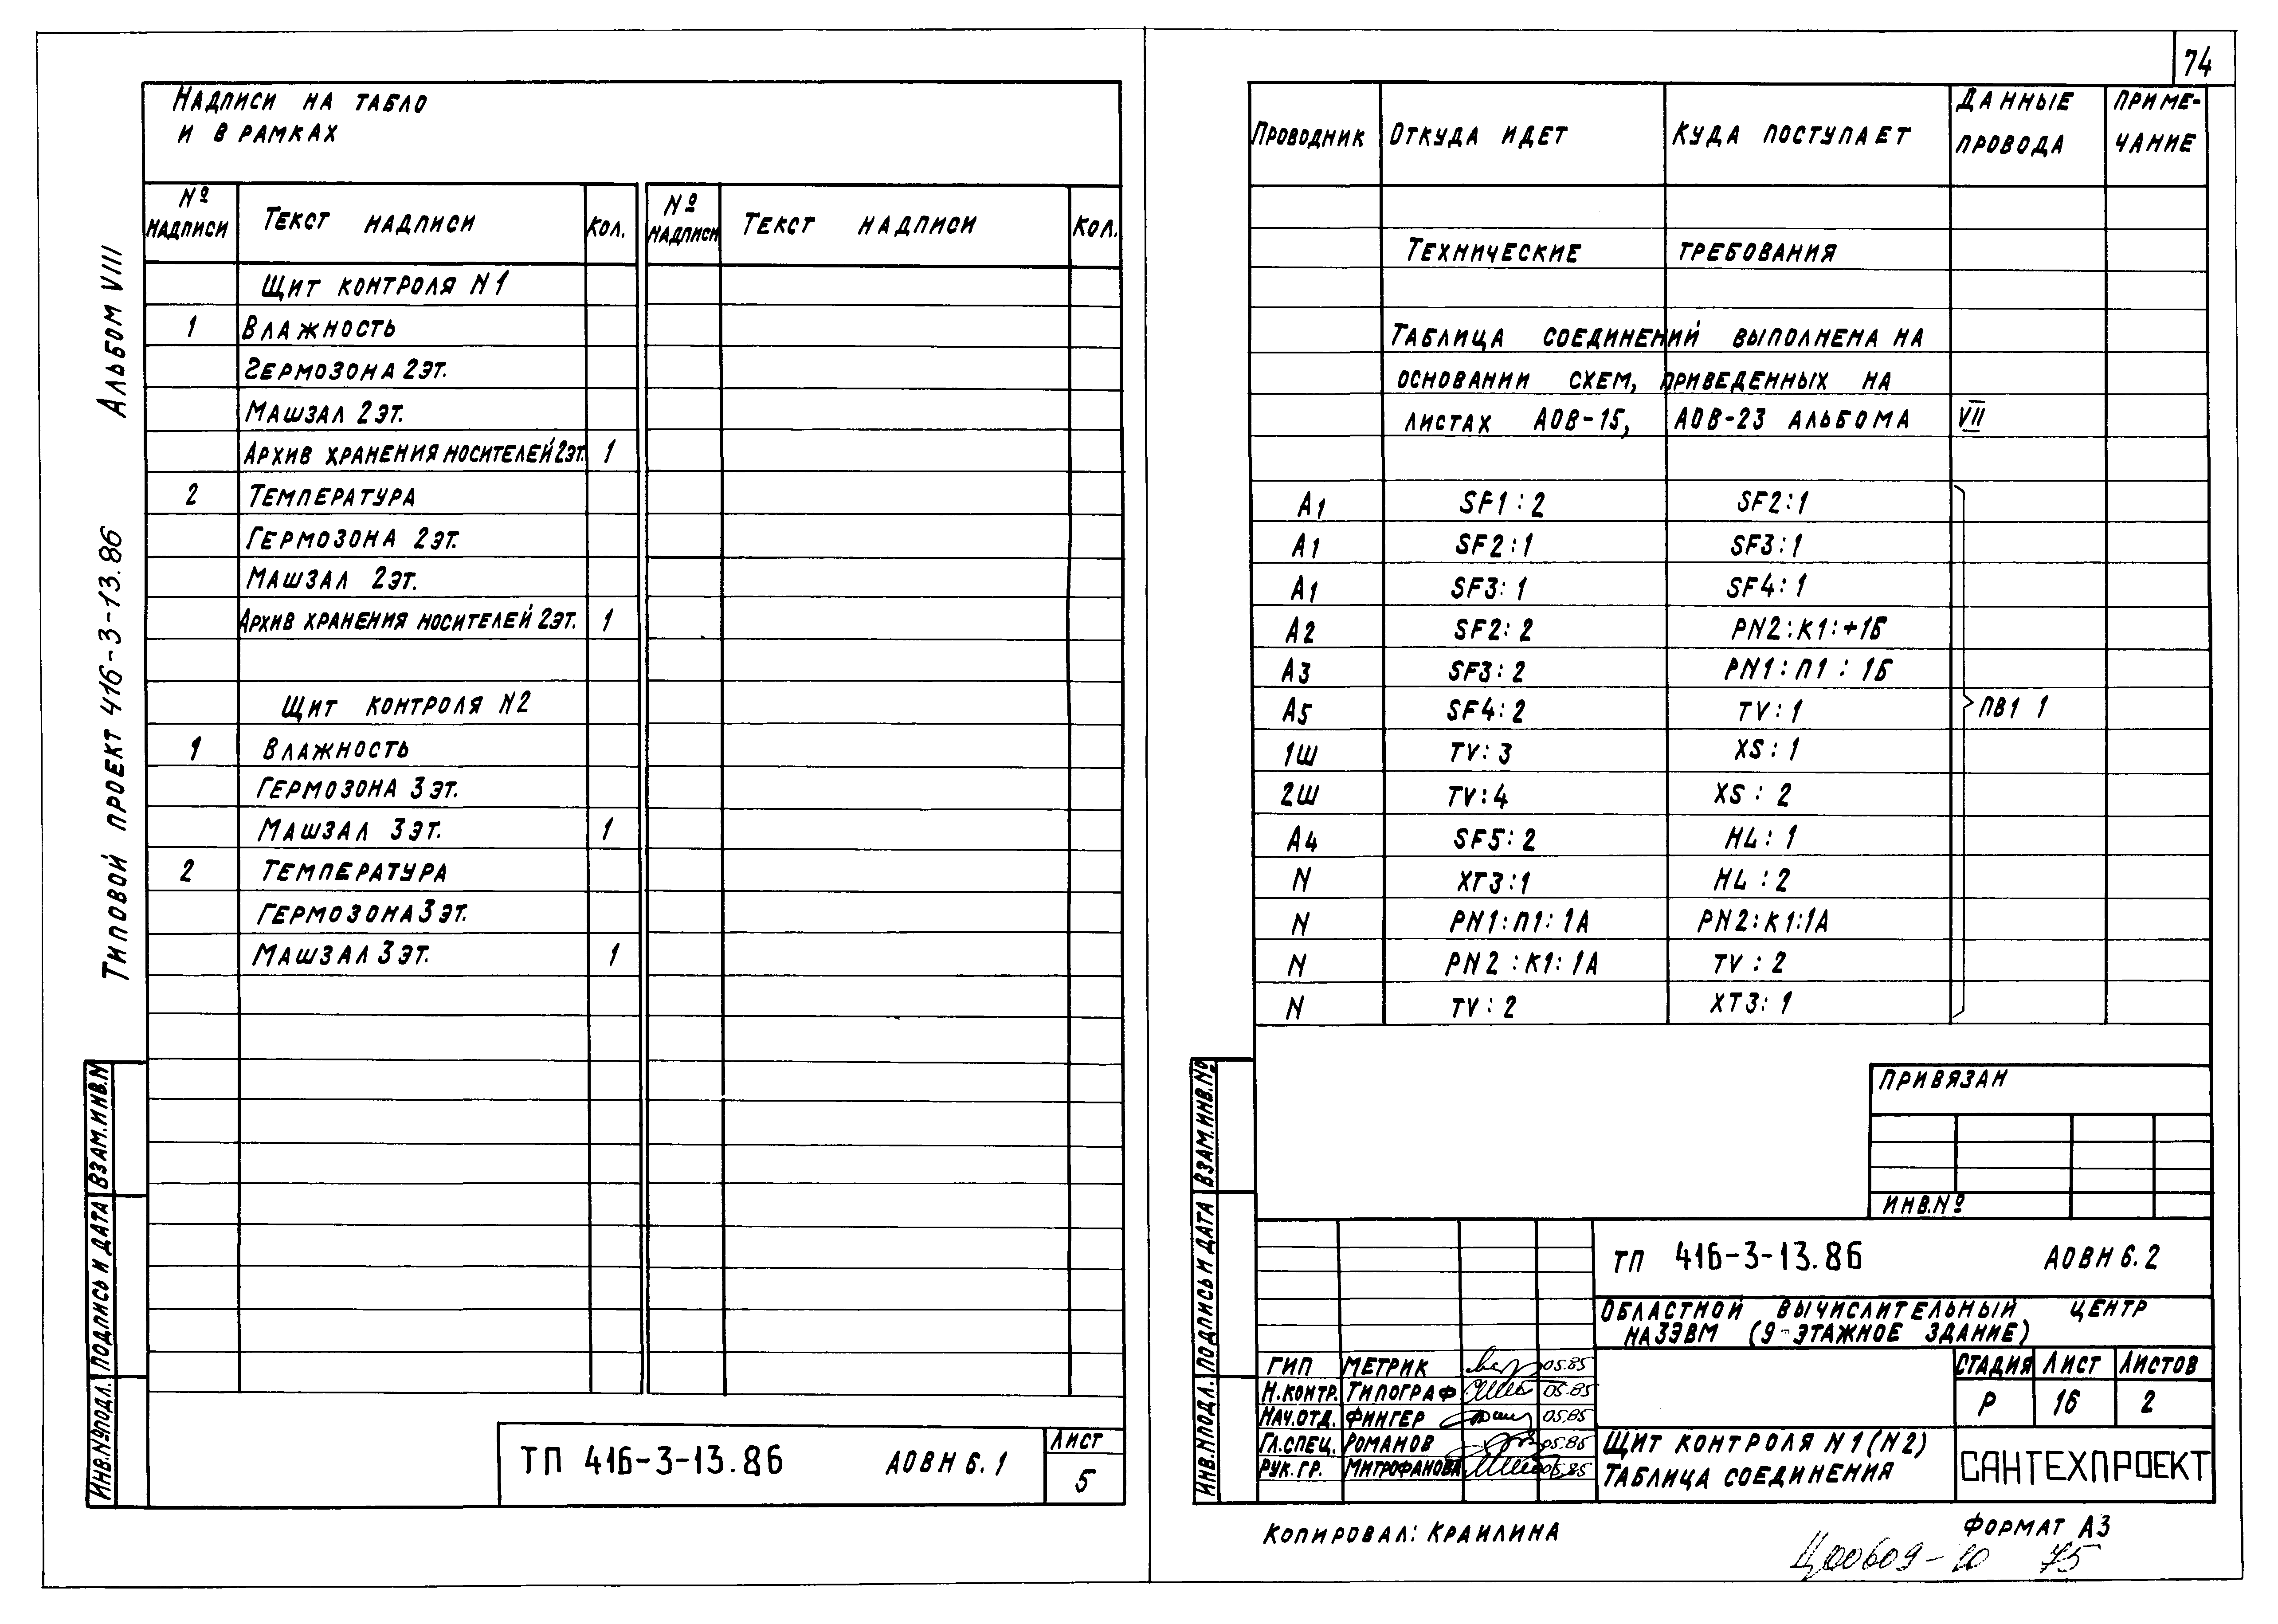 74
Альбом VIII
Типовой проект 416-3-13.86
Надписи на табло
и в рамках
№ надписи	Текст надписи	Кол.	№ надписи	Текст надписи	Кол.
Щит контроля N1
1	Влажность
Гермозона 2эт.
Машзал 2эт.
Архив хранения носителей 2эт.	1
2	Температура
Гермозона 2эт.
Машзал 2эт.
Архив хранения носителей 2эт.	1
Щит контроля N2
1	Влажность
Гермозона 3эт.
Машзал 3эт.	1
2	Температура
Гермозона 3эт.
Машзал 3эт.	1
Инв.№ подл.	Подпись и дата	Взам.инв.N
ТП 416-3-13.86	АОВН 6.1	Лист
5
Проводник	Откуда идет	Куда поступает	Данные провода	Приме-чание
Технические требования
Таблица соединений выполнена на
основании схем, приведенных на
листах АОВ-15, АОВ-23 альбома VII
А1	SF1:2	SF2:1
А1	SF2:1	SF3:1
А1	SF3:1	SF4:1
А2	SF2:2	PN2:К1:+1Б
А3	SF3:2	PN1:П1:1Б
А5	SF4:2	TV:1	ПВ1 1
1Ш	TV:3	XS:1
2Ш	TV:4	XS:2
А4	SF5:2	HL:1
N	XT3:1	HL:2
N	PN1:П1:1А	PN2:К1:1А
N	PN2:К1:1А	TV:2
N	TV:2	XT3:1
Инв.N подл.	Подпись и дата	Взам.инв.№
Привязан
Инв.№
ТП 416-3-13.86	АОВН 6.2
Областной вычислительный центр
на 3 ЭВМ (9-этажное здание)
ГИП	Метрик	05.85
Н.контр.	Типограф	05.85
Нач.отд.	Фингер	05.85
Гл.спец.	Романов	05.85
Рук.гр.	Митрофанова	05.85
Стадия	Лист	Листов
Р	16	2
Щит контроля N1 (N2)
Таблица соединения
САНТЕХПРОЕКТ
Копировал: Краилина
Формат А3
Ц00609-10	75